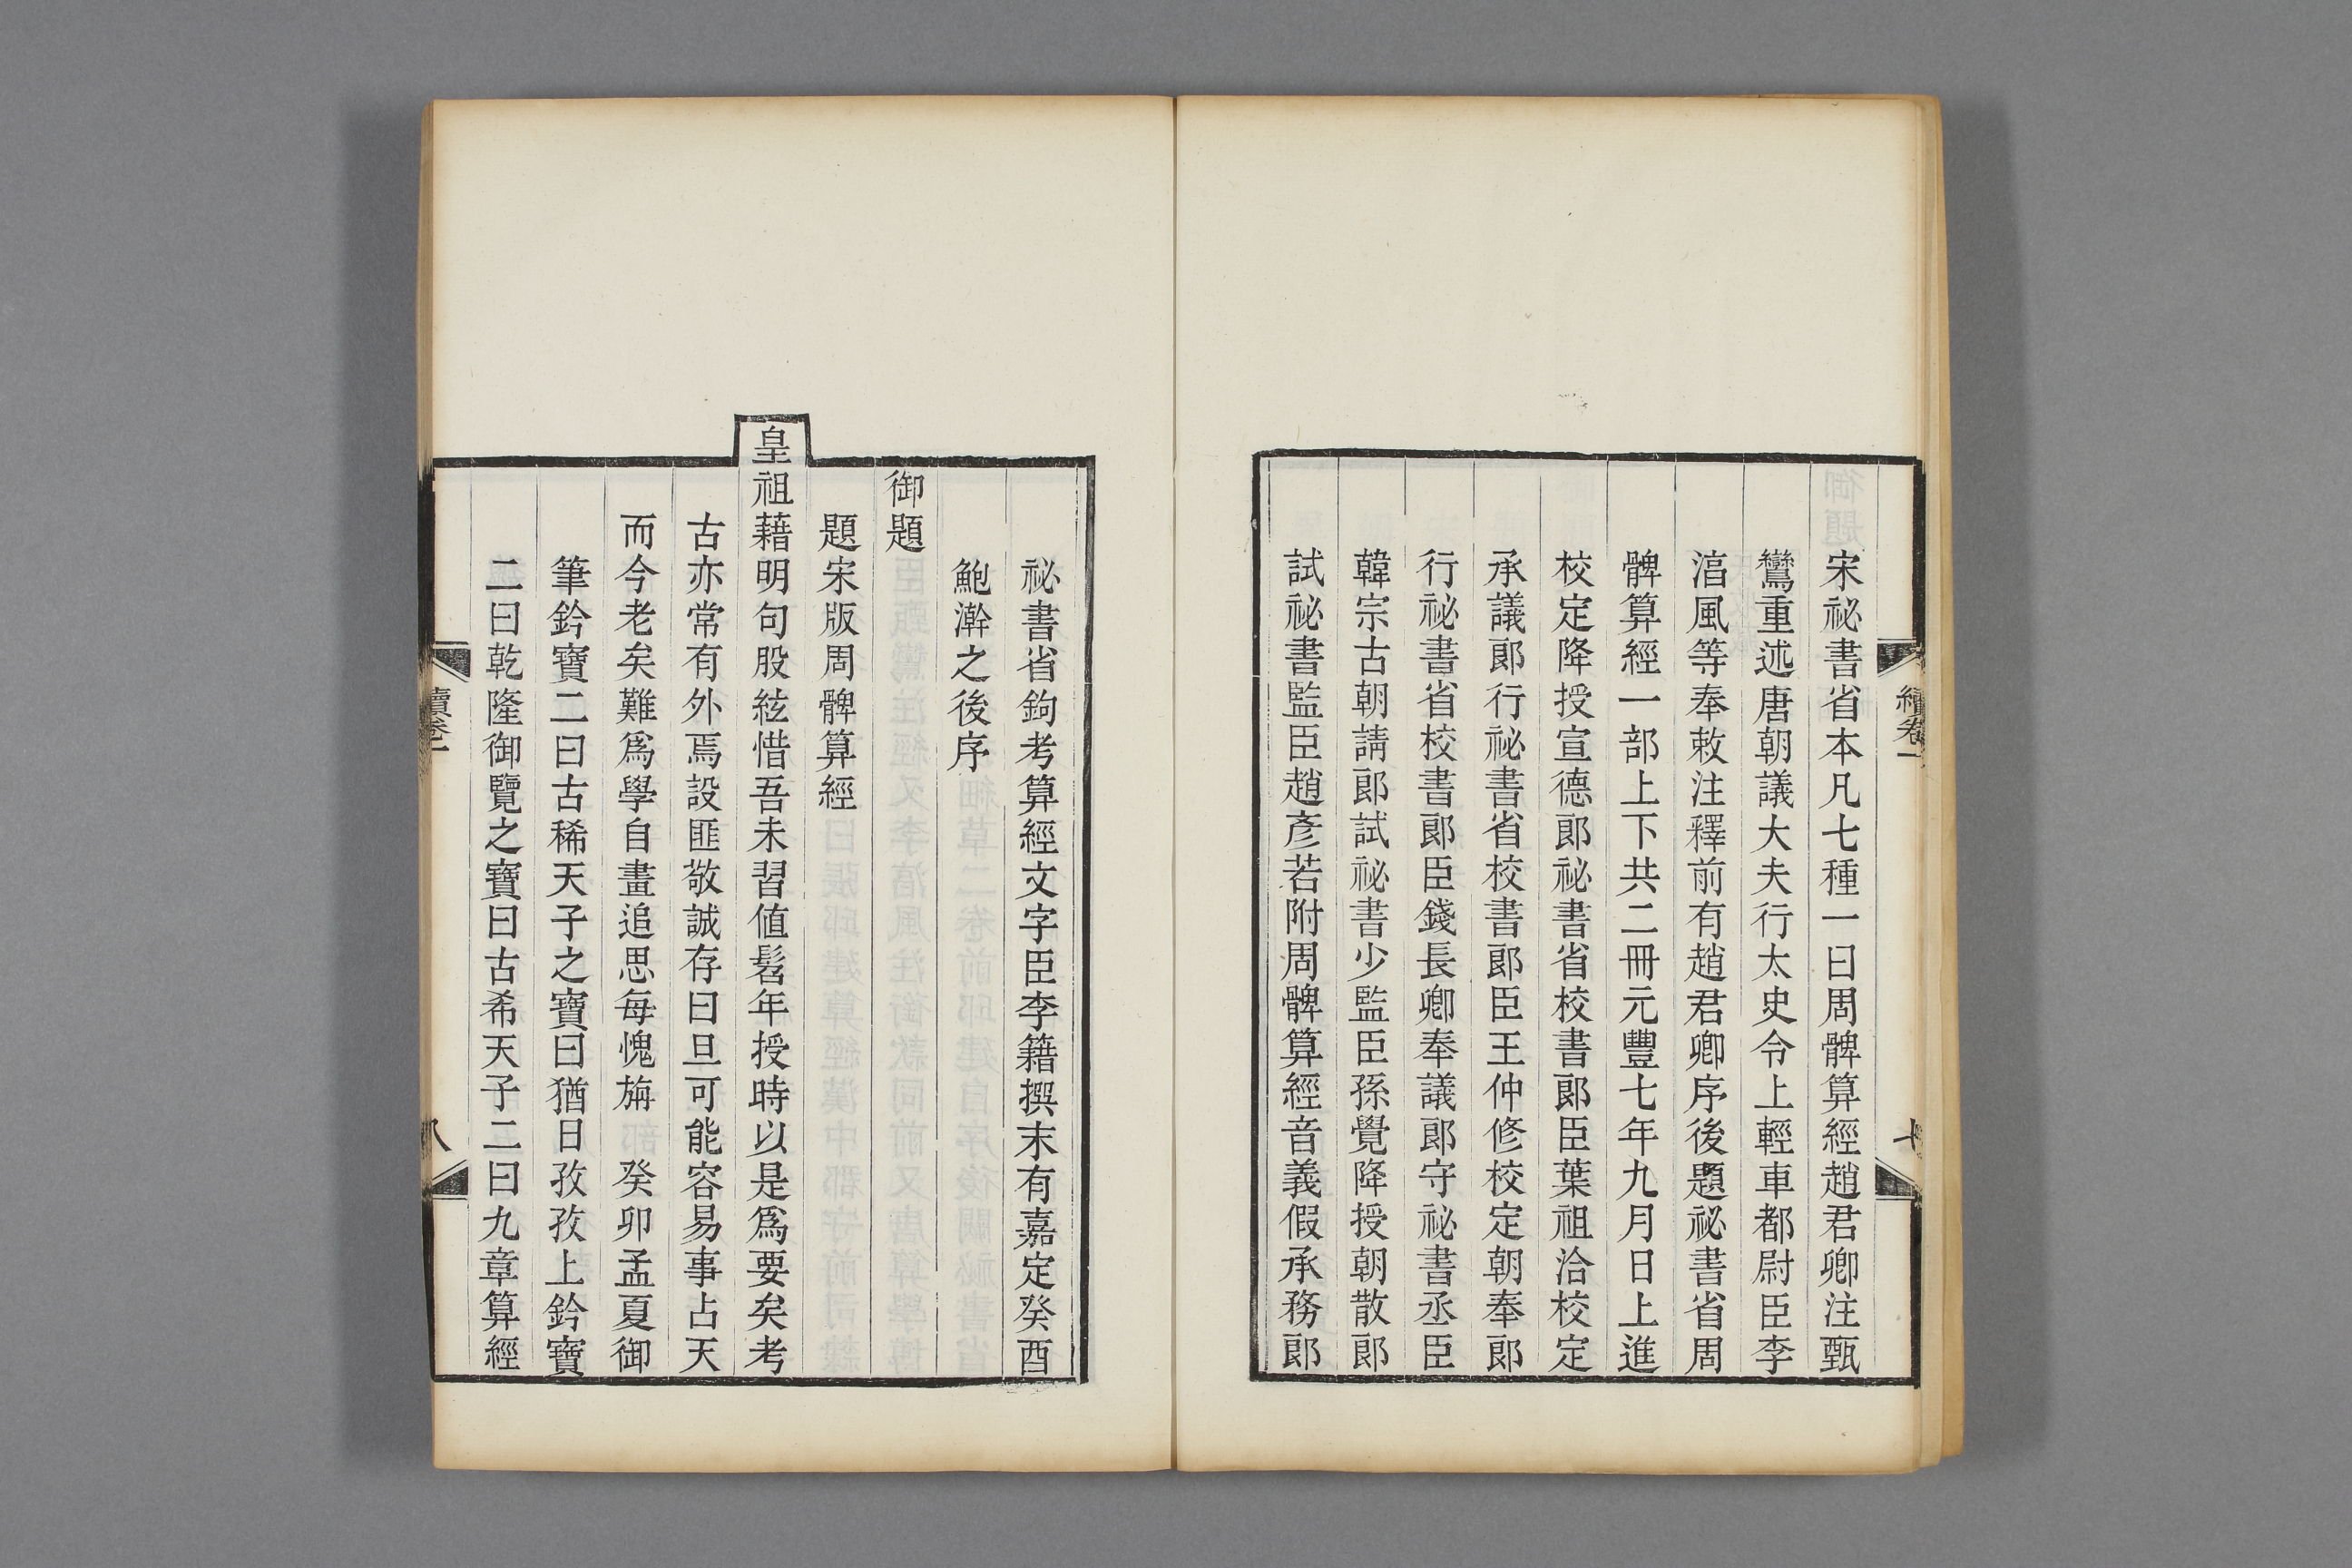 續卷一
七
宋祕書省本凡七種一曰周髀算經趙君卿注甄
鸞重述唐朝議大夫行太史令上輕車都尉臣李
淳風等奉敕注釋前有趙君卿序後題祕書省周
髀算經一部上下共二冊元豐七年九月日上進
校定降授宣德郎祕書省校書郎臣葉祖洽校定
承議郎行祕書省校書郎臣王仲修校定朝奉郎
行祕書省校書郎臣錢長卿奉議郎守祕書丞臣
韓宗古朝請郎試祕書少監臣孫覺降授朝散郎
試祕書監臣趙彥若附周髀算經音義假承務郎
祕書省鉤考算經文字臣李籍撰末有嘉定癸酉
鮑澣之後序
御題
題宋版周髀算經
皇祖藉明句股絃惜吾未習值髫年授時以是爲要矣考
古亦常有外焉設匪敬誠存曰旦可能容易事占天
而今老矣難爲學自畫追思每愧旃 癸卯孟夏御
筆鈐寶二曰古稀天子之寶曰猶日孜孜上鈐寶
二曰乾隆御覽之寶曰古希天子二曰九章算經
續卷一
八